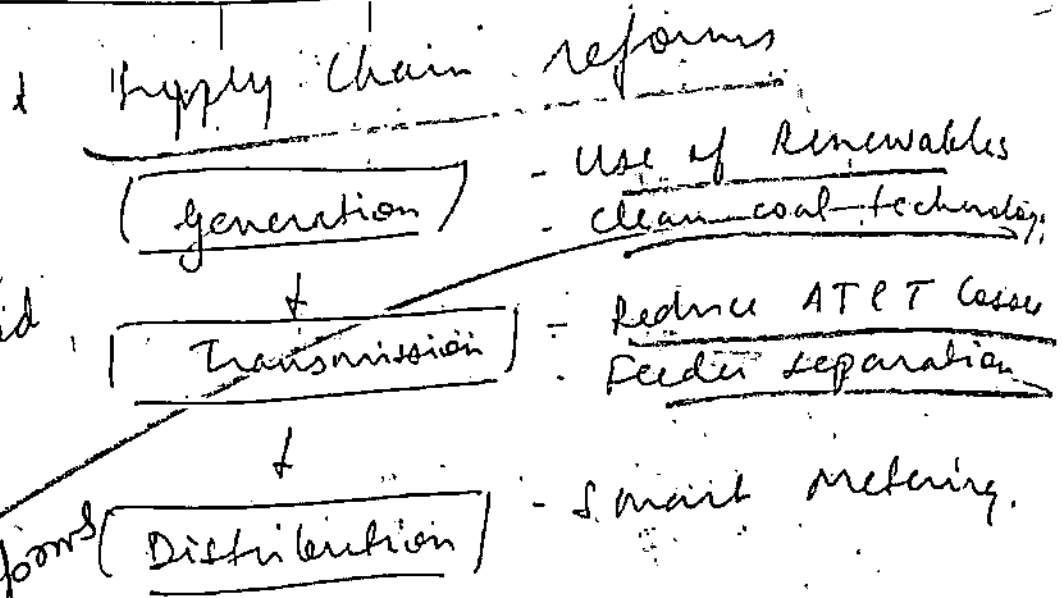 Supply Chain reforms
Generation - Use of Renewables
- Clean coal technology
Transmission - Reduce AT&T Losses
- Feeder separation
Distribution - Smart Metering.